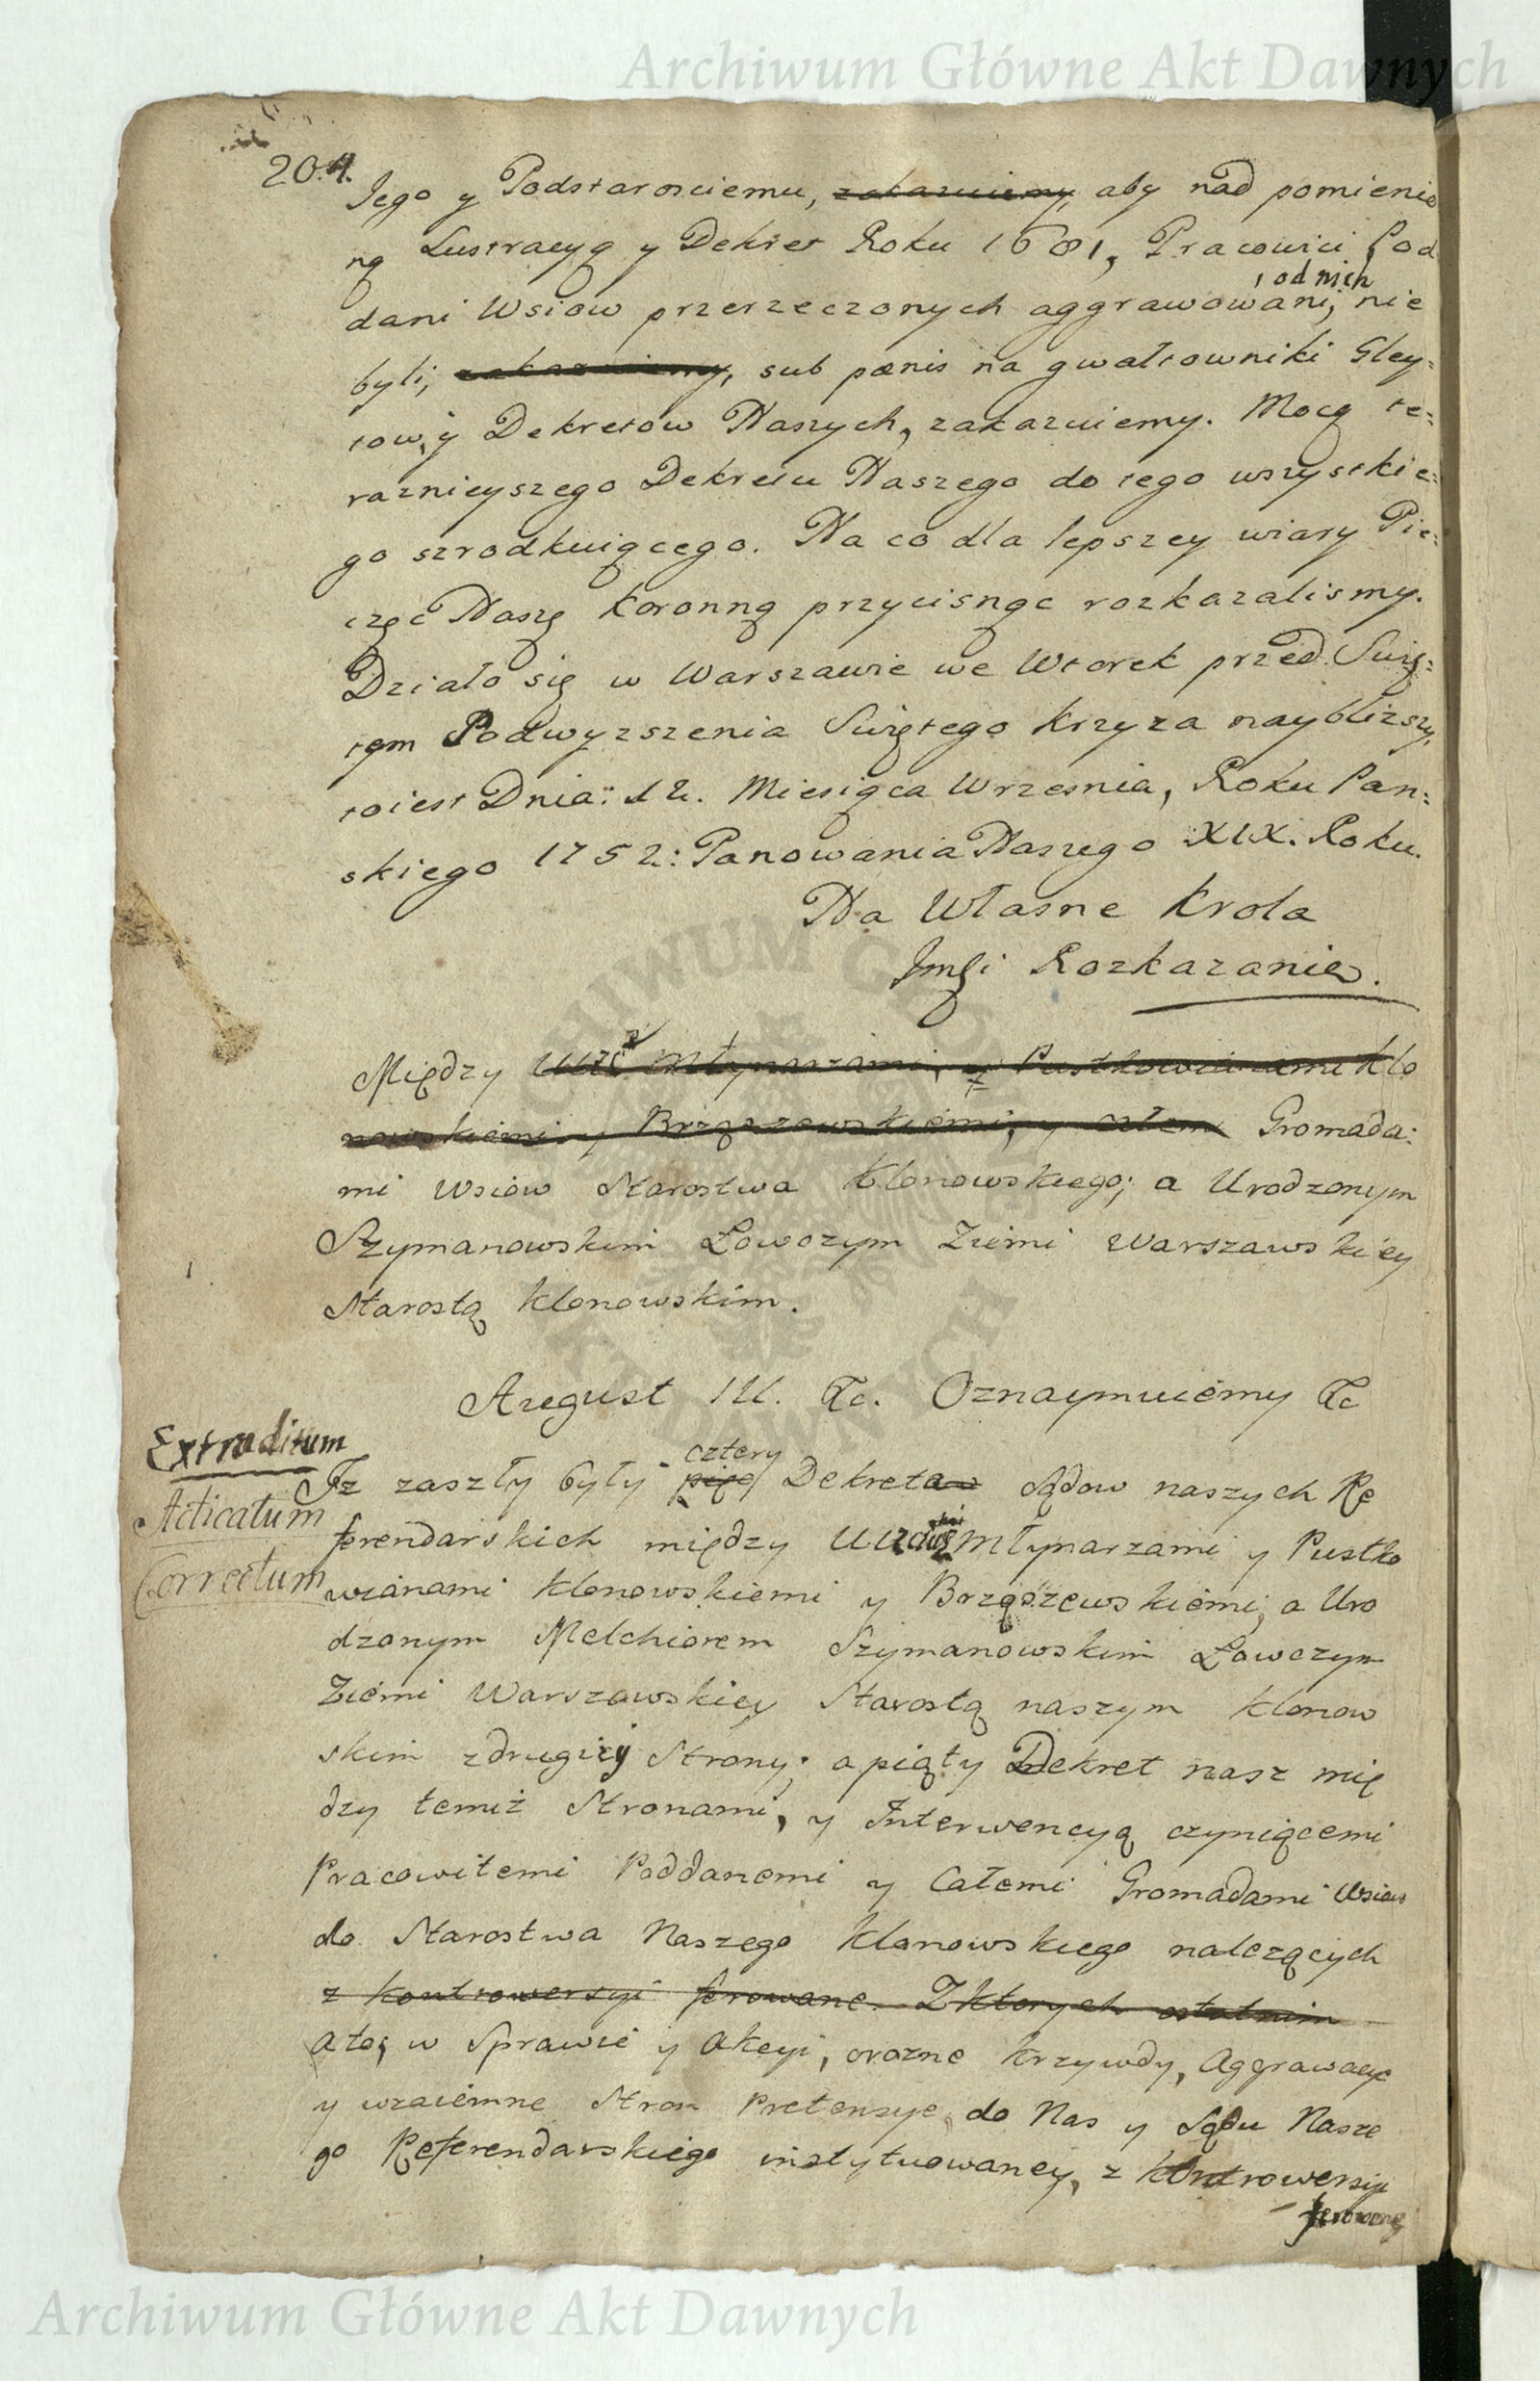 Archiwum Główne Akt Dawnych
204.
Jego y Podstarosciemu, zakazuiemy, aby nad pomienio
ną Lustracyą y Dekret Roku 1681, Pracowici Pod
od nich
dani Wsiow przerzeczonych aggrawowani, nie
byli, zakazuiemy, sub pœnis na gwałtowniki Gley:
tow, y Dekretow Naszych, zakazuiemy. Mocą te:
raznieyszego Dekretu Naszego do tego wszystkie:
go szrodkuiącego. Na co dla lepszey wiary Pie:
częc Naszę Koronną przycisnąc rozkazalismy.
Działo się w Warszawie we Wtorek przed Swię:
tem Podwyzszenia Swiętego Krzyza nayblizszy,
toiest Dnia: 12. Miesiąca Wrzesnia, Roku Pan:
skiego 1752: Panowania Naszego XIX. Roku.
Na Własne Krola
Jmsci Rozkazanie.
Między Młynarzami, y Pustkowianami Klo
nowskiemi y Brząszewskiemi, y całemi Gromada:
mi Wsiow Starostwa Klonowskiego; a Urodzonym
Szymanowskim Łowczym Ziemi Warszawskiey
Starostą Klonowskim.
August III. &c. Oznaymuiemy &c
Extraditum
Acticatum
Correctum
cztery
Jz zaszły były pięć Dekreta Sądow naszych Re
ferendarskich między Młynarzami y Pustko
wianami Klonowskiemi y Brząszewskiemi, a Uro
dzonym Melchiorem Szymanowskim Łowczym
Ziemi Warszawskiey Starostą naszym Klonow
skim zdrugiey Strony; a piąty Dekret nasz mię
dzy temiż Stronami, y Interwencyą czyniącemi
Pracowitemi Poddanemi y Całemi Gromadami Wsiow
do Starostwa Naszego Klonowskiego należących
z kontrowersyi ferowane. Z ktorych ostatnim
a to, w Sprawie y Akcyi, orozne Krzywdy, Aggrawacye
y wzaiemne Stron Pretensye, do Nas y Sądu Nasze
go Referendarskiego instytuowaney, z kontrowersyi
ferowane
Archiwum Główne Akt Dawnych